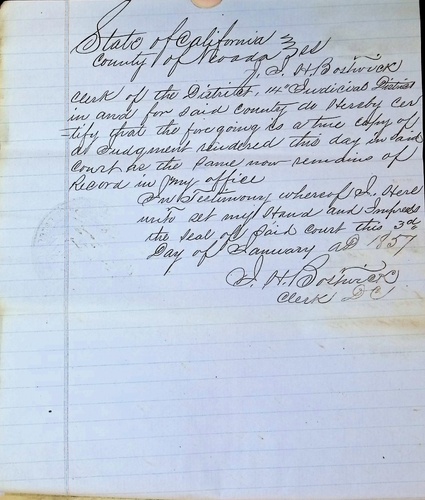 State of California
County of Nevada } ss
I, I. H. Bostwick
Clerk of the District, 14th Judicial District
in and for said county do Hereby Cer
=tify that the foregoing is a true copy of
a Judgment rendered this day in said
Court as the same now remains of
Record in my office
In Testimony whereof I. Here
unto set my Hand and Impress
the seal of Said Court this 3d
Day of January AD 1857
I. H. Bostwick
Clerk DC